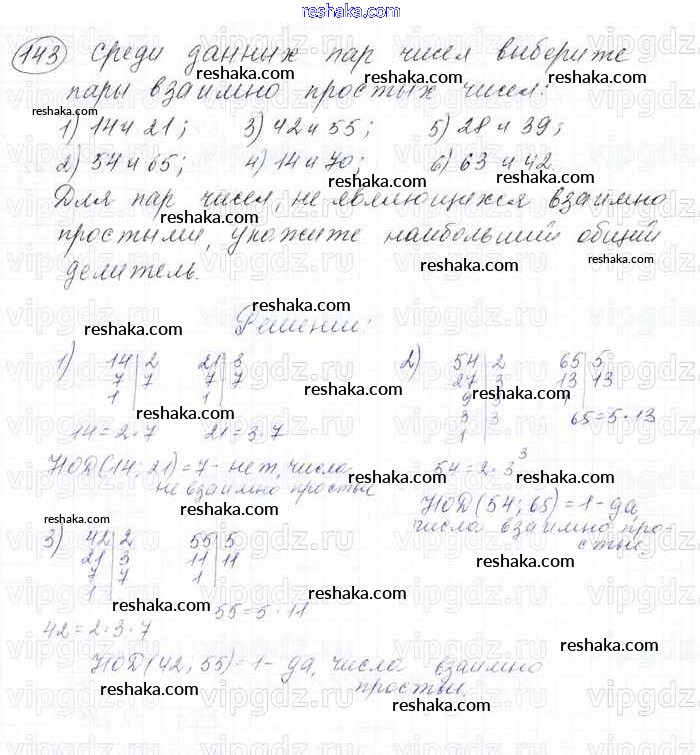 reshaka.com
143 Среди данных пар чисел выберите
reshaka.com reshaka.com
пары взаимно простых чисел:
reshaka.com reshaka.com
1) 14 и 21; 3) 42 и 55; 5) 28 и 39;
reshaka.com reshaka.com reshaka.com
2) 54 и 65; 4) 14 и 70; 6) 63 и 42.
reshaka.com
Для пар чисел, не являющихся взаимно
reshaka.com
простыми, укажите наибольший общий
reshaka.com reshaka.com
делитель.
reshaka.com
Решение:
reshaka.com reshaka.com
1) 14 | 2 21 | 3 2) 54 | 2 65 | 5
7 | 7 7 | 7 27 | 3 13 | 13
reshaka.com
1 1 9 | 3 1
reshaka.com
3 | 3 65=5·13
1
14=2·7 21=3·7
reshaka.com
НОД(14; 21)=7 - нет, числа 54=2·3³
не взаимно простые
reshaka.com
НОД(54; 65)=1 - да,
числа взаимно про-
стые.
reshaka.com reshaka.com
3) 42 | 2 55 | 5
21 | 3 11 | 11
7 | 7 1
1
reshaka.com
55=5·11
42=2·3·7
reshaka.com
НОД(42; 55)=1 - да, числа взаимно
простые.
reshaka.com reshaka.com
vipgdz.ru